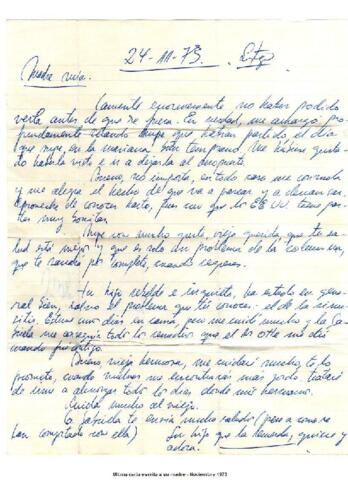 24-11-73. Stgo
Madre mía:
Lamenté enormemente no haber podido
verla antes de que se fuera. En verdad, me amargó pro-
fundamente cuando supe que habían partido el día
que supe, en la mañana bien temprano. Me hubiera gusta-
do haberla visto e ir a dejarla al aeropuerto.
Bueno, no importa, en todo caso me consuela
y me alegra el hecho de que va a pasear y a descansar.
Aproveche de conocer harto, pues creo que los EE.UU. tiene par-
tes muy bonitas.
Supe con mucho gusto, vieja querida, que tu sa-
lud está mejor y que es sólo un problema de la columna,
que te sanará por completo, cuando regreses.
Tu hijo rebelde e inquieto, ha estado en gene-
ral bien, salvo el problema que tú conoces: el de la sinu-
sitis. Estuve unos días en cama, pero me cuidé mucho y la Ga-
briela me con todo los remedios que el Dr. Otto me dió
cuando fui contigo.
Bueno vieja hermosa, me cuidaré mucho te lo
prometo, cuando vuelvas me encontrarás más gordo, trataré
de irme a almorzar todos los días donde mi hermano.
Cuida mucho al viejo.
G. Gabriela te envía muchos saludos (pese a cono-
tan compartido con ella)
Tu hijo que la recuerda, quiere y
adora.
Última carta escrita a su madre - Noviembre 1973